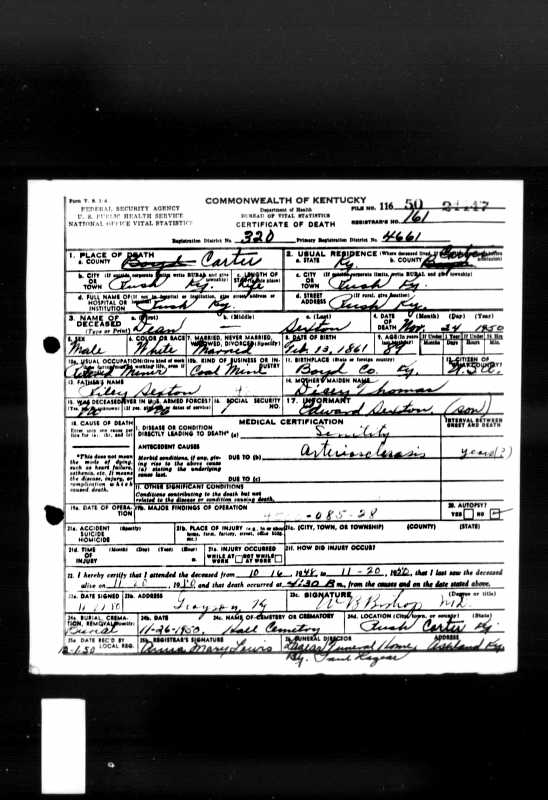 Form V. S. 1-A
FEDERAL SECURITY AGENCY
U. S. PUBLIC HEALTH SERVICE
NATIONAL OFFICE VITAL STATISTICS
COMMONWEALTH OF KENTUCKY
Department of Health
BUREAU OF VITAL STATISTICS
CERTIFICATE OF DEATH
FILE NO. 116 50 21147
REGISTRAR'S NO. 161
Registration District No. 320 Primary Registration District No. 4661
1. PLACE OF DEATH
a. COUNTY Boyd Carter
2. USUAL RESIDENCE (Where deceased lived.
a. STATE Ky. b. COUNTY Boyd Carter
b. CITY OR TOWN Rush Ky. c. LENGTH OF life
c. CITY OR TOWN Rush Ky.
d. FULL NAME OF HOSPITAL OR INSTITUTION Rush Ky.
d. STREET ADDRESS (If rural, give location) Rush Ky.
3. NAME OF DECEASED (Type or Print) a. (First) Dean b. (Middle) c. (Last) Sexton
4. DATE OF DEATH (Month) (Day) (Year) Nov. 24 1950
5. SEX Male 6. COLOR OR RACE White 7. MARRIED, NEVER MARRIED, WIDOWED, DIVORCED (Specify) Married 8. DATE OF BIRTH Feb. 13, 1861 9. AGE 89
10a. USUAL OCCUPATION Retired Miner 10b. KIND OF BUSINESS OR INDUSTRY Coal Mine 11. BIRTHPLACE (State or foreign country) Boyd Co. Ky. 12. CITIZEN OF WHAT COUNTRY? U.S.A.
13. FATHER'S NAME Riley Sexton
14. MOTHER'S MAIDEN NAME Thomas
15. WAS DECEASED EVER IN U.S. ARMED FORCES? No 16. SOCIAL SECURITY NO.
17. INFORMANT Edward Sexton (son)
18. CAUSE OF DEATH
MEDICAL CERTIFICATION
INTERVAL BETWEEN ONSET AND DEATH
I. DISEASE OR CONDITION DIRECTLY LEADING TO DEATH* (a) Senility
ANTECEDENT CAUSES
*This does not mean the mode of dying, such as heart failure, asthenia, etc. It means the disease, injury, or complication which caused death.
Morbid conditions, if any, giving rise to the above cause (a) stating the underlying cause last.
DUE TO (b) arteriosclerosis years(?)
DUE TO (c)
II. OTHER SIGNIFICANT CONDITIONS
Conditions contributing to the death but not related to the disease or condition causing death.
19a. DATE OF OPERATION 19b. MAJOR FINDINGS OF OPERATION 085-28
20. AUTOPSY? YES NO
21a. ACCIDENT SUICIDE HOMICIDE (Specify) 21b. PLACE OF INJURY 21c. (CITY, TOWN, OR TOWNSHIP) (COUNTY) (STATE)
21d. TIME OF INJURY (Month) (Day) (Year) (Hour) 21e. INJURY OCCURRED WHILE AT WORK NOT WHILE AT WORK 21f. HOW DID INJURY OCCUR?
22. I hereby certify that I attended the deceased from 10 16, 1948, to 11-20, 1950, that I last saw the deceased
alive on 11 20, 1950, and that death occurred at 4:30 m., from the causes and on the date stated above.
23a. DATE SIGNED 23b. ADDRESS Grayson, Ky 23c. SIGNATURE Bishop M.D. (Degree or title)
24a. BURIAL, CREMATION, REMOVAL Burial 24b. DATE 11-26-1950 24c. NAME OF CEMETERY OR CREMATORY Hall Cemetery 24d. LOCATION (City, town, or county) (State) Rush Carter Ky.
25a. DATE REC'D BY LOCAL REG. 12-1-50 25b. REGISTRAR'S SIGNATURE Anna Mary Lewis 26. FUNERAL DIRECTOR Lazear Funeral Home ADDRESS Ashland Ky.
By. Paul Lazear